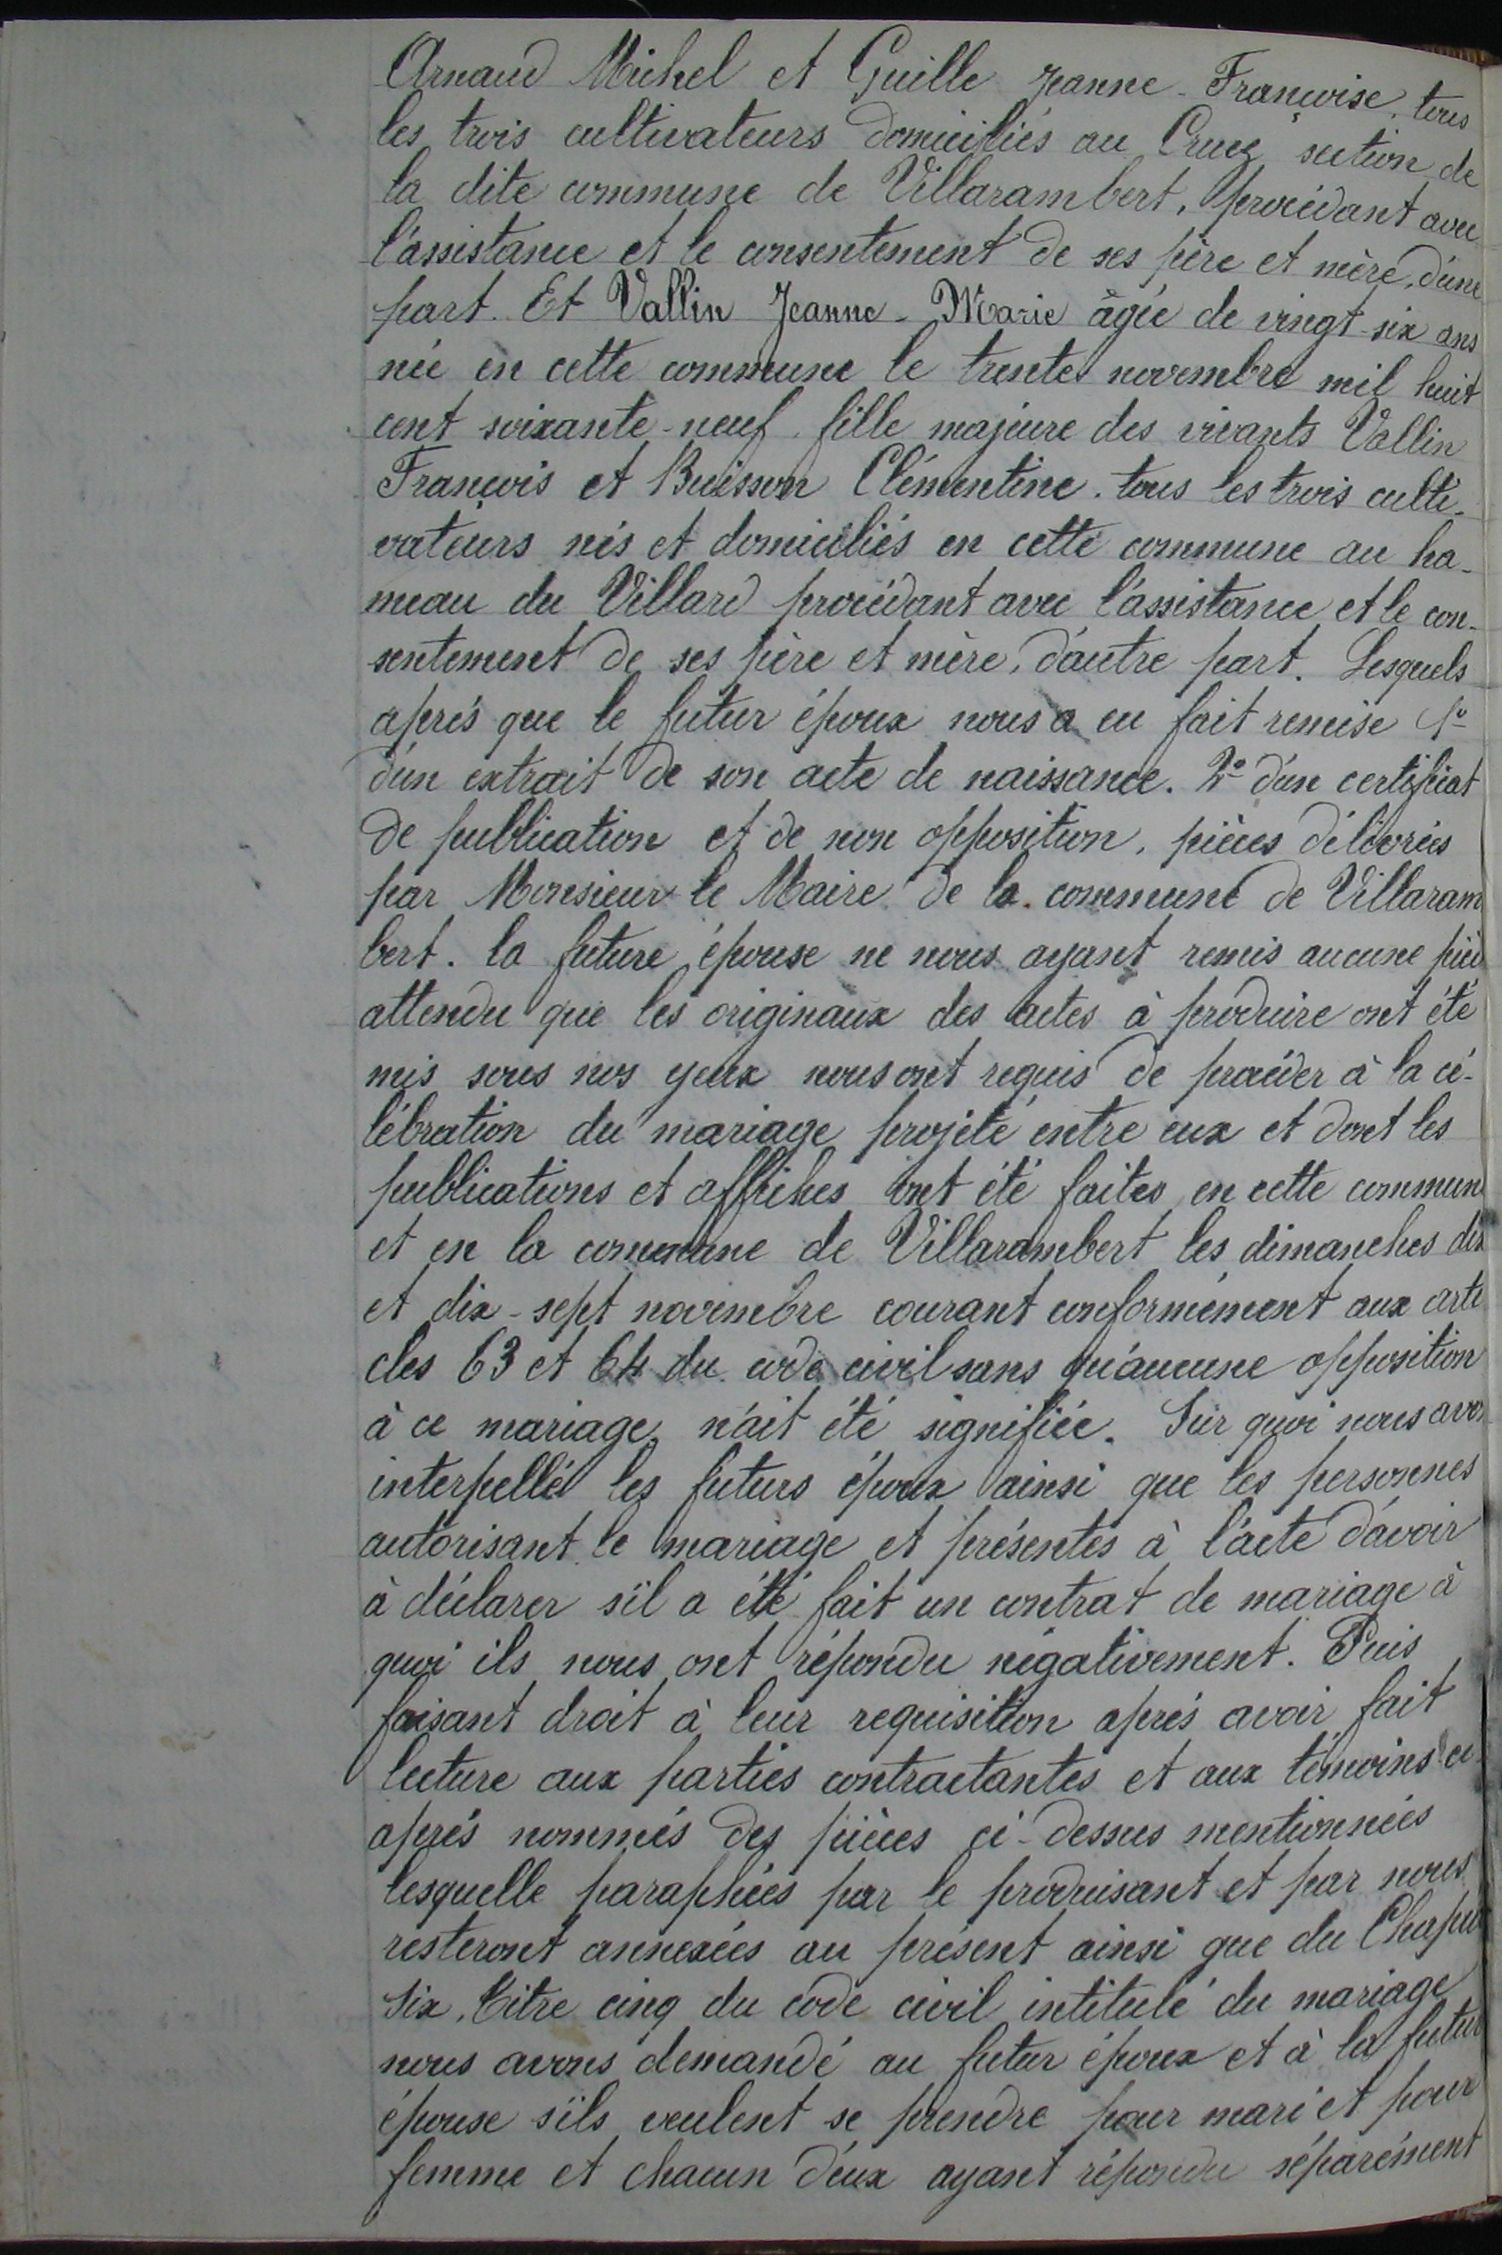 Arnaud Michel et Guille Jeanne-Françoise, tous
les trois cultivateurs domiciliés au Cruez section de
la dite commune de Villarambert, procédant avec
l'assistance et le consentement de ses père et mère, d'une
part. Et Vallin Jeanne-Marie âgée de vingt-six ans
née en cette commune le trente novembre mil huit
cent soixante-neuf fille majeure des vivants Vallin
François et Buisson Clémentine. tous les trois culti-
vateurs nés et domiciliés en cette commune au ha-
meau du Villard procédant avec l'assistance et le con-
sentement de ses père et mère, d'autre part. Lesquels
après que le futur époux nous a eu fait remise 1º
d'un extrait de son acte de naissance. 2º d'un certificat
de publication et de non opposition, pièces délivrées
par Monsieur le Maire de la commune de Villaram
bert. la future épouse ne nous ayant remis aucune piè
attendu que les originaux des actes à produire ont été
mis sous nos yeux nous ont requis de procéder à la cé-
lébration du mariage projeté entre eux et dont les
publications et affiches ont été faites en cette commun
et en la commune de Villarambert les dimanches dix
et dix-sept novembre courant conformément aux arti
cles 63 et 64 du code civil sans qu'aucune opposition
à ce mariage n'ait été signifiée. Sur quoi nous avon
interpellé les futurs époux ainsi que les personnes
autorisant le mariage et présentes à l'acte d'avoir
à déclarer s'il a été fait un contrat de mariage à
quoi ils nous ont répondu négativement. Puis
faisant droit à leur requisition après avoir fait
lecture aux parties contractantes et aux témoins ci
après nommés des pièces ci-dessus mentionnées
lesquelle paraphées par le produisant et par nous
resteront annexées au présent ainsi que du Chapit
Six, Titre cinq du code civil intitulé du mariage
nous avons demandé au futur époux et à la futur
épouse s'ils veulent se prendre pour mari et pour
femme et chacun d'eux ayant répondu séparément